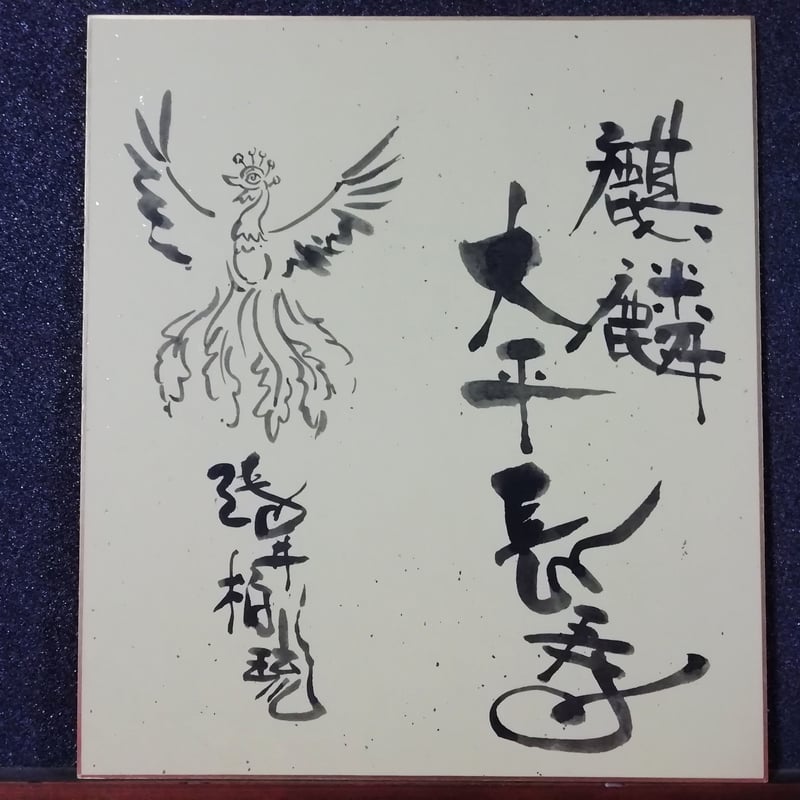 麒麟
太平長寿
井